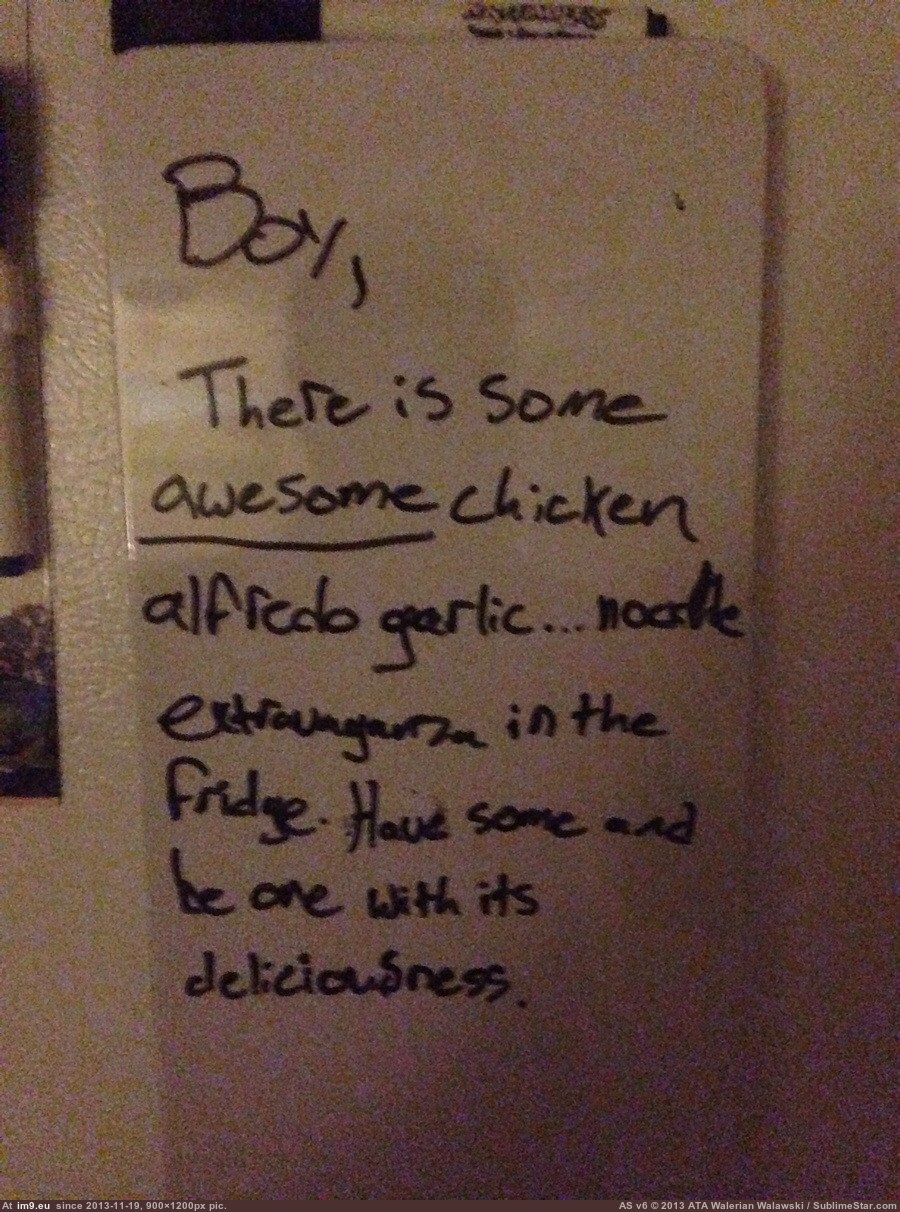 Boy,
There is some
awesome chicken
alfredo garlic... noodle
extravaganza in the
fridge. Have some and
be one with its
deliciousness.
At im9.eu since 2013-11-19, 900×1200px pic.
AS v6 © 2013 ATA Walerian Walawski / SublimeStar.com